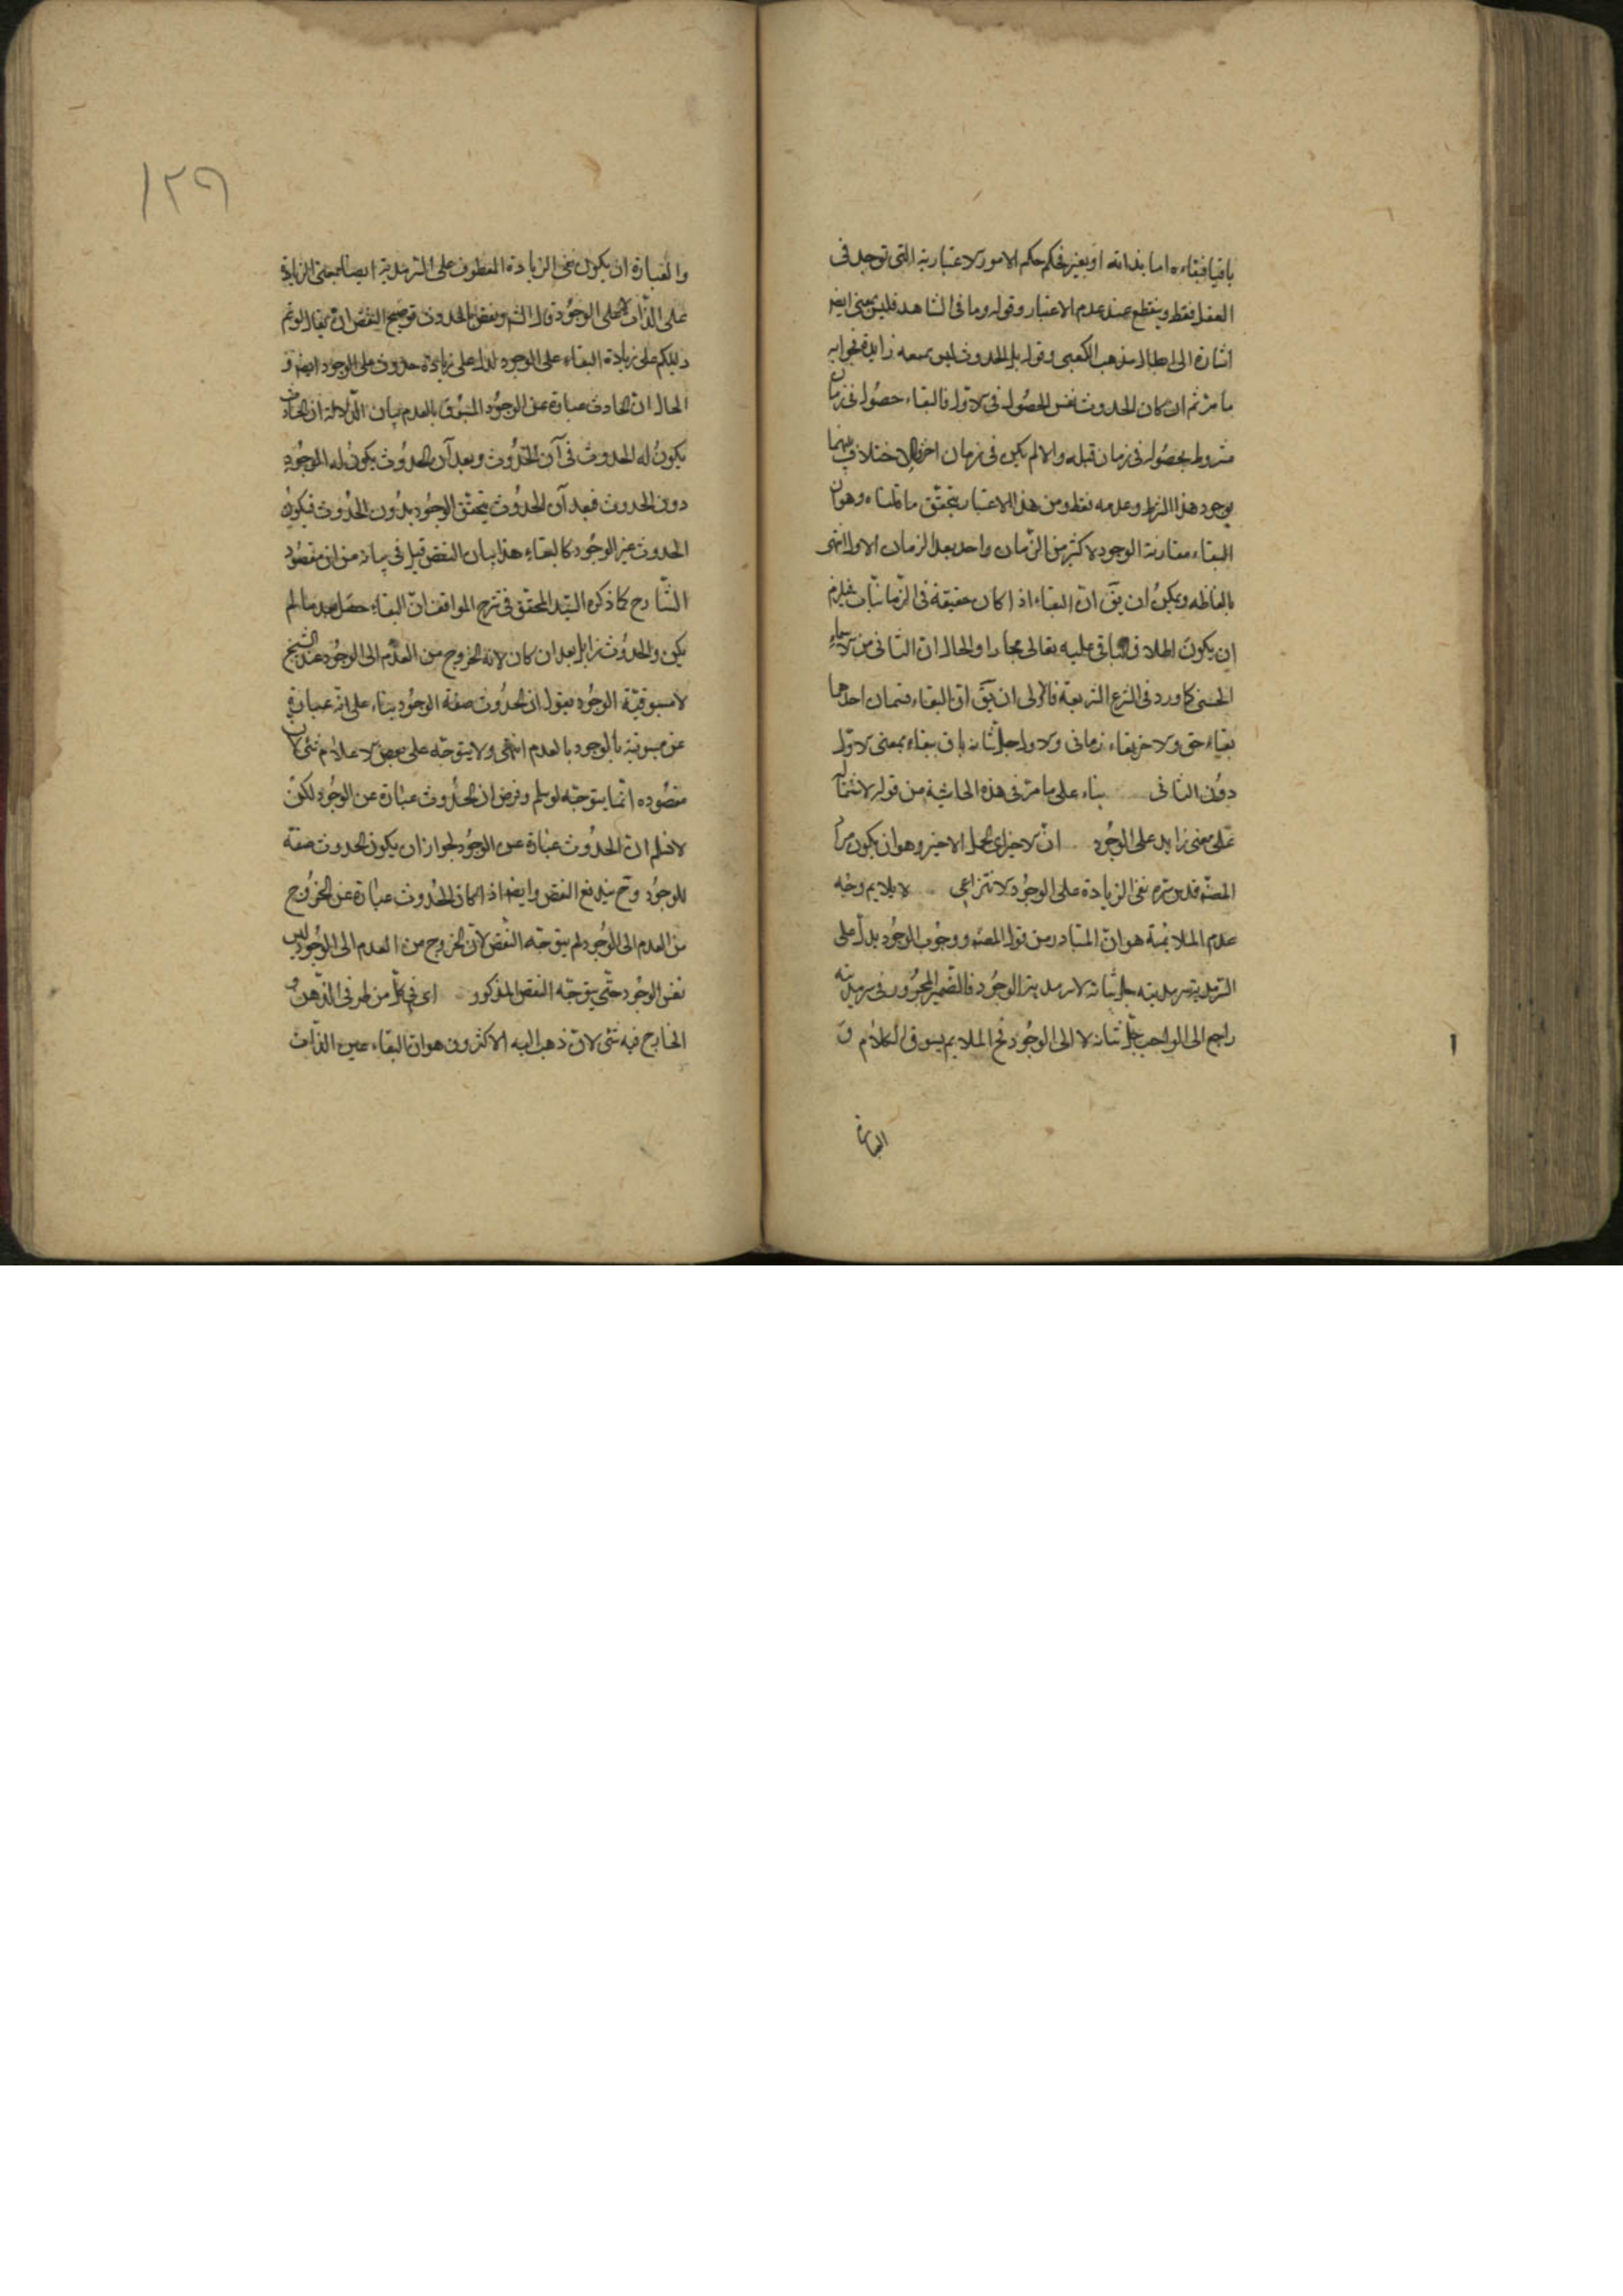 باقيا فبقاءه اما بذاته او بغيره فحكم حكم الامور الاعتبارية التى توجد فى
العقل فقط وينقطع عند عدم الاعتبار وقوله وما فى الشاهد فليس بمعنى ايضا
اشارة الى ابطال مذهب الكعبى وقوله بل الحدوث ليس بمعه زايدة بجوابه
ما مر ثم ان كان الحدوث نفس الحصول فى الاول فالبقاء حصوله فى زمان
مشروط بحصوله فى زمان قبله والا لم يكن فى زمان اخر فالاختلاف بينهما
بوجود هذا الشرط وعدمه فقط ومن هذا الاعتبار يتحقق ما قلناه وهو ان
البقاء مقارنة الوجود لاكثر من الزمان واحد بعد الزمان الاول انتهى
بالفاظه ويمكن ان يق ان البقاء اذا كان حقيقة فى الزمانيات فيلزم
ان يكون اطلاق الباقى عليه تعالى مجازا والحال ان الثانى من الاسماء
الحسنى كما ورد فى الشرع الشريعة فالاولى ان يق ان البقاء قسمان احدهما
بقاء حق والاخر بقاء زمانى والاول جل شانه باق ببقاء بمعنى الاول
دون الثانى بناء على ما مر فى هذه الحاشية من قوله لاشتماله
على معنى زايد على الوجود ان الاخير اى الحمل الاخير وهو ان يكون مراد
المصنه قدس سره نفى الزيادة على الوجود الانتزاعى لا يلايم وجه
عدم الملائمة هو ان المتبادر من قول المصنه ووجوب الوجود يدل على
السرمدية سرمديته جل شانه لا سرمدية الوجود فالضمير المجرور فى سرمديته
راجع الى الواجب جل شانه لا الى الوجود فح الملايم بسوق الكلام و
العبارة
١٢٩
والعبارة ان يكون نفى الزيادة المعطوف على السرمدية ايضا بمعنى الزيادة
على الذات لا على الوجود قال الشه ونقض بالحدوث توضيح النقض ان يقال لو تم
دليلكم على زيادة البقاء على الوجود لدل على زيادة حدوث على الوجود ايضا و
الحال ان الحادث عبارة عن الوجود المسبوق بالعدم بيان الدلالة ان الحادث
يكون له الحدوث فى آن الحدوث وبعد آن الحدوث يكون له الوجود
دون الحدوث فبعد آن الحدوث يتحقق الوجود بدون الحدوث فيكون
الحدوث غير الوجود كالبقاء هذا بيان النقض قيل فى بيانه من ان مقصود
الشارح كما ذكره السيد المحقق فى شرح المواقف ان البقاء حصل بعد ما لم
يكن والحدوث زايل بعد ان كان لانه الخروج من العدم الى الوجود عند الشيخ
لا مسبوقية الوجود بقوله ان الحدوث صفة الوجود بناء على انه عبارة
عن مسبوقية الوجود بالعدم انتهى ولا يتوجه على بعض الاعلام شئ لان
مقصوده انما يتوجه لو سلم وفرض ان الحدوث عبارة عن الوجود لكن
لا نسلم ان الحدوث عبارة عن الوجود لجواز ان يكون الحدوث صفة
للوجود وح يندفع النقض وايضا اذا كان الحدوث عبارة عن الخروج
من العدم الى الوجود لم يتوجه النقض لان الخروج من العدم الى الوجود ليس
نفس الوجود حتى يتوجه النقض المذكور اى فى كل من طرفى الذهن و
الخارج فيه شئ لان ذهب اليه الاكثرون هو ان البقاء عين الذات